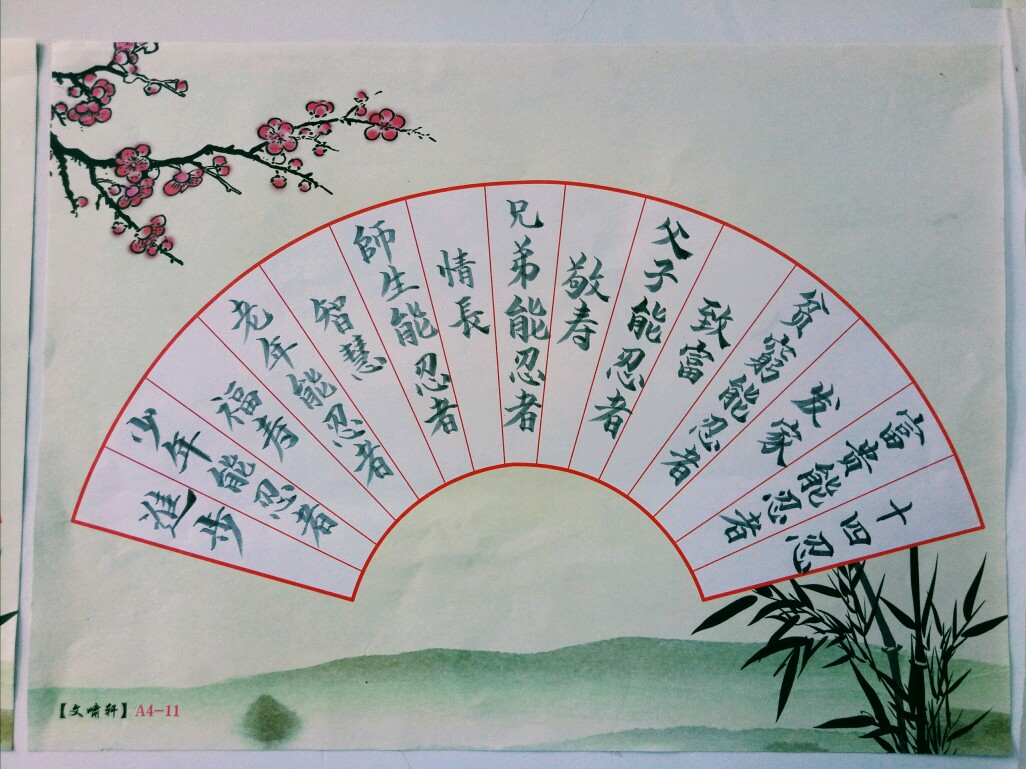 十四忍
富貴能忍者
发家
贫窮能忍者
致富
父子能忍者
敬寿
兄弟能忍者
情長
師生能忍者
智慧
老年能忍者
福寿
少年能忍者
進步
【文啸轩】A4-11